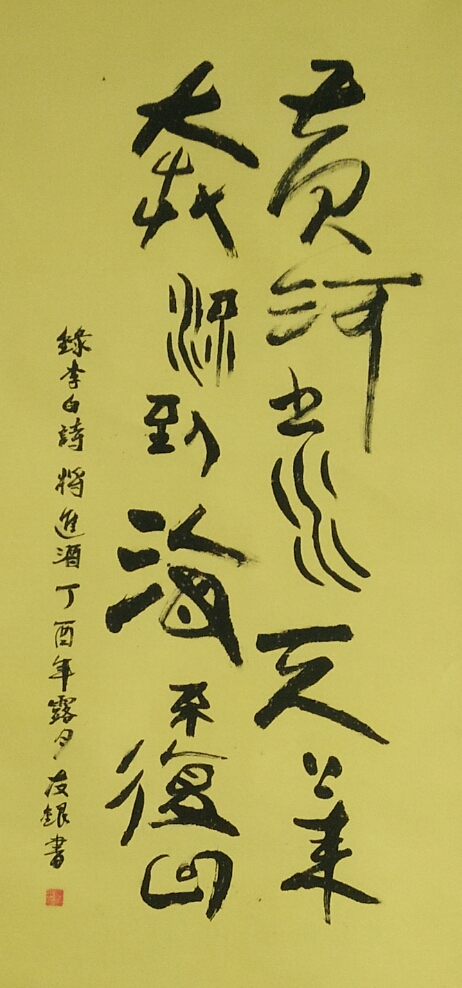 黄河之水天上来
奔流到海不復回
錄李白詩將進酒丁酉年露月友銀書